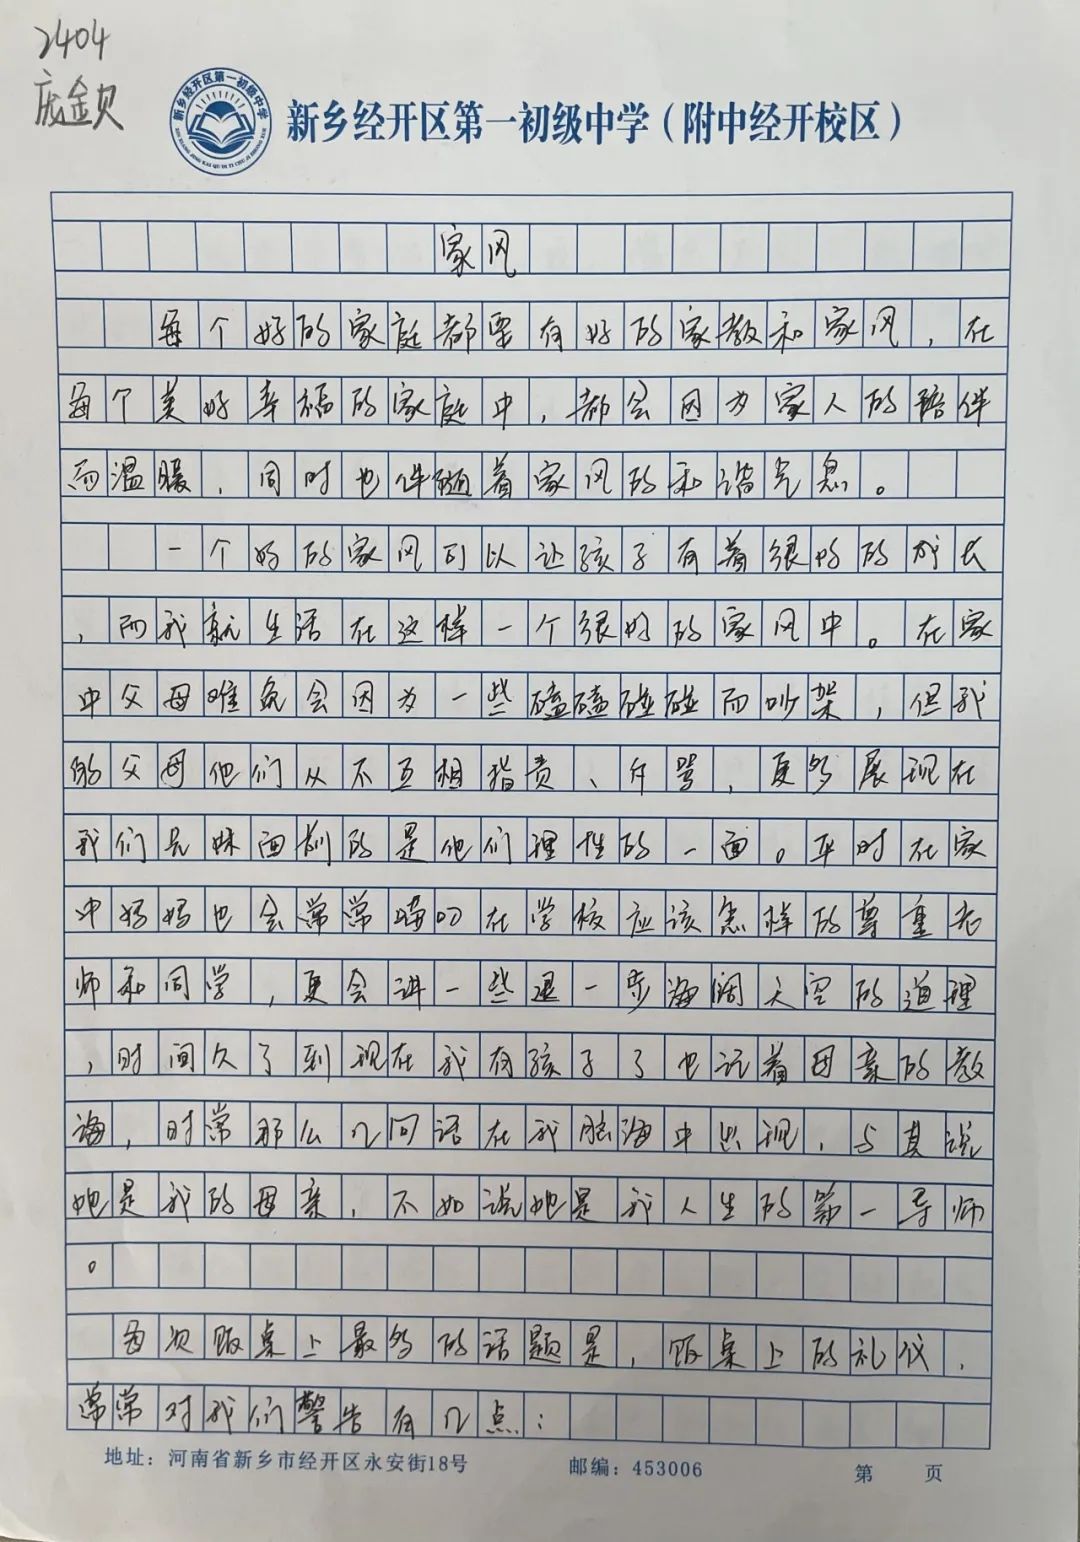 2404
庞金贝
新乡经开区第一初级中学
新乡经开区第一初级中学（附中经开校区）
家风
每个好的家庭都要有好的家教和家风，在
每个美好幸福的家庭中，都会因为家人的陪伴
而温暖，同时也伴随着家风的和谐光息。
一个好的家风可以让孩子有着很好的成长
，而我就生活在这样一个很好的家风中。在家
中父母难免会因为一些磕磕碰碰而吵架，但我
的父母他们从不互相指责、斥骂，更多展现在
我们兄妹面前的是他们理性的一面。平时在家
中妈妈也会常常唠叨在学校应该怎样的尊重老
师和同学，更会讲一些退一步海阔天空的道理
，时间久了到现在我有孩子了也记着母亲的教
诲，时常那么几句话在我脑海中出现，与其说
她是我的母亲，不如说她是我人生的第一导师
。
每次饭桌上最多的话题是，饭桌上的礼仪，
常常对我们警告有几点：
地址：河南省新乡市经开区永安街18号 邮编：453006 第 页